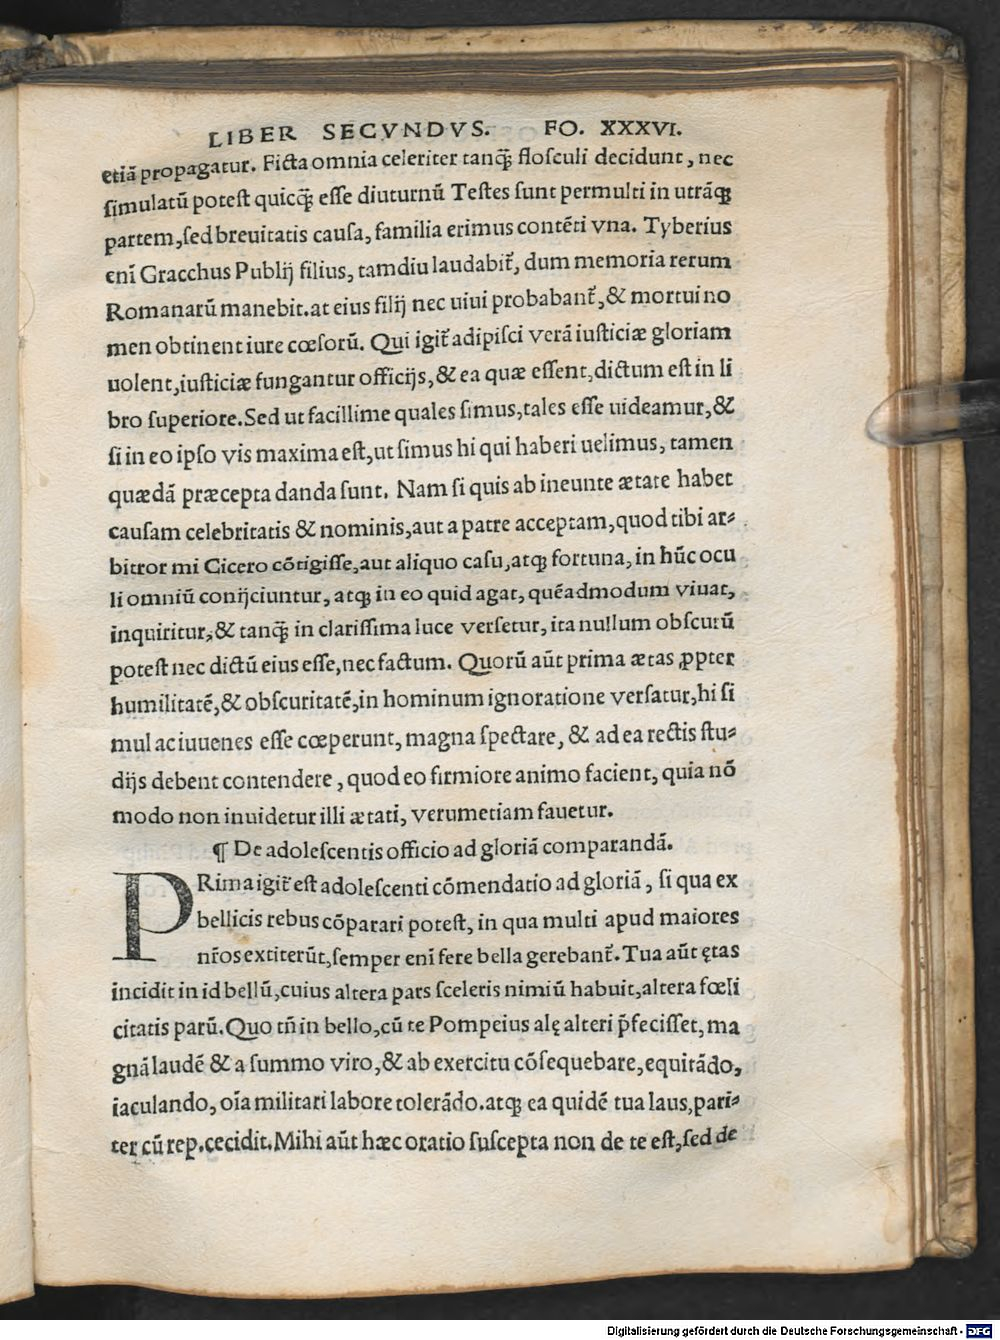 LIBER SECVNDVS. FO. XXXVI.
etiã propagatur. Ficta omnia celeriter tanq̃ flosculi decidunt, nec
ſimulatũ poteſt quicq̃ eſſe diuturnũ Teſtes ſunt permulti in utrãqꝫ
partem, ſed breuitatis cauſa, familia erimus contẽti vna. Tyberius
enĩ Gracchus Publij filius, tamdiu laudabit᷑, dum memoria rerum
Romanarũ manebit. at eius filij nec uiui probabant᷑, & mortui no
men obtinent iure cœſorũ. Qui igit᷑ adipiſci verã iuſticiæ gloriam
uolent, iuſticiæ fungantur officijs, & ea quæ eſſent, dictum eſt in li
bro ſuperiore. Sed ut facillime quales ſimus, tales eſſe uideamur, &
ſi in eo ipſo vis maxima eſt, ut ſimus hi qui haberi uelimus, tamen
quædã præcepta danda ſunt. Nam ſi quis ab ineunte ætate habet
cauſam celebritatis & nominis, aut a patre acceptam, quod tibi ar⸗
bitror mi Cicero cõtigiſſe, aut aliquo caſu, atqꝫ fortuna, in hũc ocu
li omniũ conijciuntur, atqꝫ in eo quid agat, quẽadmodum viuat,
inquiritur, & tanq̃ in clariſſima luce verſetur, ita nullum obſcurũ
poteſt nec dictũ eius eſſe, nec factum. Quorũ aũt prima ætas ꝓpter
humilitatẽ, & obſcuritatẽ, in hominum ignoratione verſatur, hi ſi
mul ac iuuenes eſſe cœperunt, magna ſpectare, & ad ea rectis ſtu⸗
dijs debent contendere, quod eo firmiore animo facient, quia nõ
modo non inuidetur illi ætati, verumetiam fauetur.
¶ De adoleſcentis officio ad gloriã comparandã.
PRima igit᷑ eſt adoleſcenti cõmendatio ad gloriã, ſi qua ex
bellicis rebus cõparari poteſt, in qua multi apud maiores
nr̃os extiterũt, ſemper enĩ fere bella gerebant᷑. Tua aũt ętas
incidit in id bellũ, cuius altera pars ſceleris nimiũ habuit, altera fœli
citatis parũ. Quo tñ in bello, cũ te Pompeius alę alteri p̃feciſſet, ma
gnã laudẽ & a ſummo viro, & ab exercitu cõſequebare, equitãdo,
iaculando, oĩa militari labore tolerãdo. atqꝫ ea quidẽ tua laus, pari⸗
ter cũ rep. cecidit. Mihi aũt hæc oratio ſuſcepta non de te eſt, ſed de
Digitalisierung gefördert durch die Deutsche Forschungsgemeinschaft - DFG